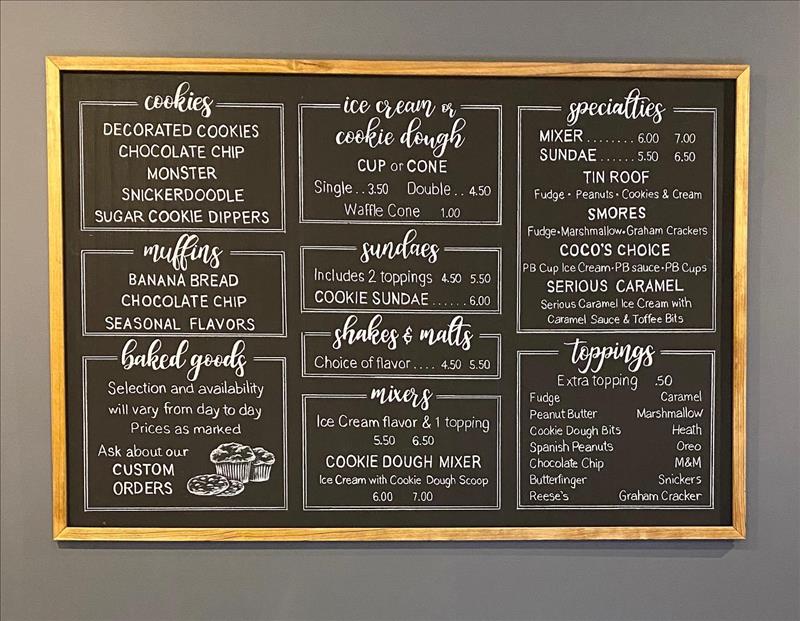 cookies
DECORATED COOKIES
CHOCOLATE CHIP
MONSTER
SNICKERDOODLE
SUGAR COOKIE DIPPERS
muffins
BANANA BREAD
CHOCOLATE CHIP
SEASONAL FLAVORS
baked goods
Selection and availability
will vary from day to day
Prices as marked
Ask about our
CUSTOM
ORDERS
ice cream or
cookie dough
CUP or CONE
Single . . 3.50 Double . . 4.50
Waffle Cone 1.00
sundaes
Includes 2 toppings 4.50 5.50
COOKIE SUNDAE . . . . . . 6.00
shakes & malts
Choice of flavor . . . . 4.50 5.50
mixers
Ice Cream flavor & 1 topping
5.50 6.50
COOKIE DOUGH MIXER
Ice Cream with Cookie Dough Scoop
6.00 7.00
specialties
MIXER . . . . . . . . 6.00 7.00
SUNDAE . . . . . . 5.50 6.50
TIN ROOF
Fudge • Peanuts • Cookies & Cream
SMORES
Fudge•Marshmallow•Graham Crackers
COCO'S CHOICE
PB Cup Ice Cream•PB sauce•PB Cups
SERIOUS CARAMEL
Serious Caramel Ice Cream with
Caramel Sauce & Toffee Bits
toppings
Extra topping .50
Fudge Caramel
Peanut Butter Marshmallow
Cookie Dough Bits Heath
Spanish Peanuts Oreo
Chocolate Chip M&M
Butterfinger Snickers
Reese's Graham Cracker